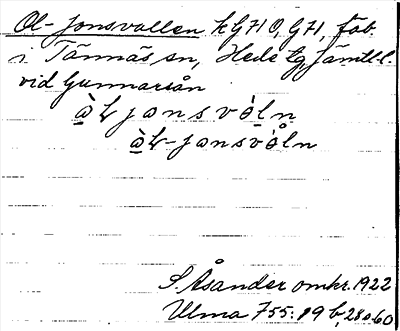 Ol-Jonsvallen, kG710, G71, fäb.
i Tännäs sn, Hede tg, Jämtl. l.
vid Gunnarsån
jonsvòln
jonsvòln
S. Åsander omkr. 1922
Ulma 755: 19 b, 28 o 60